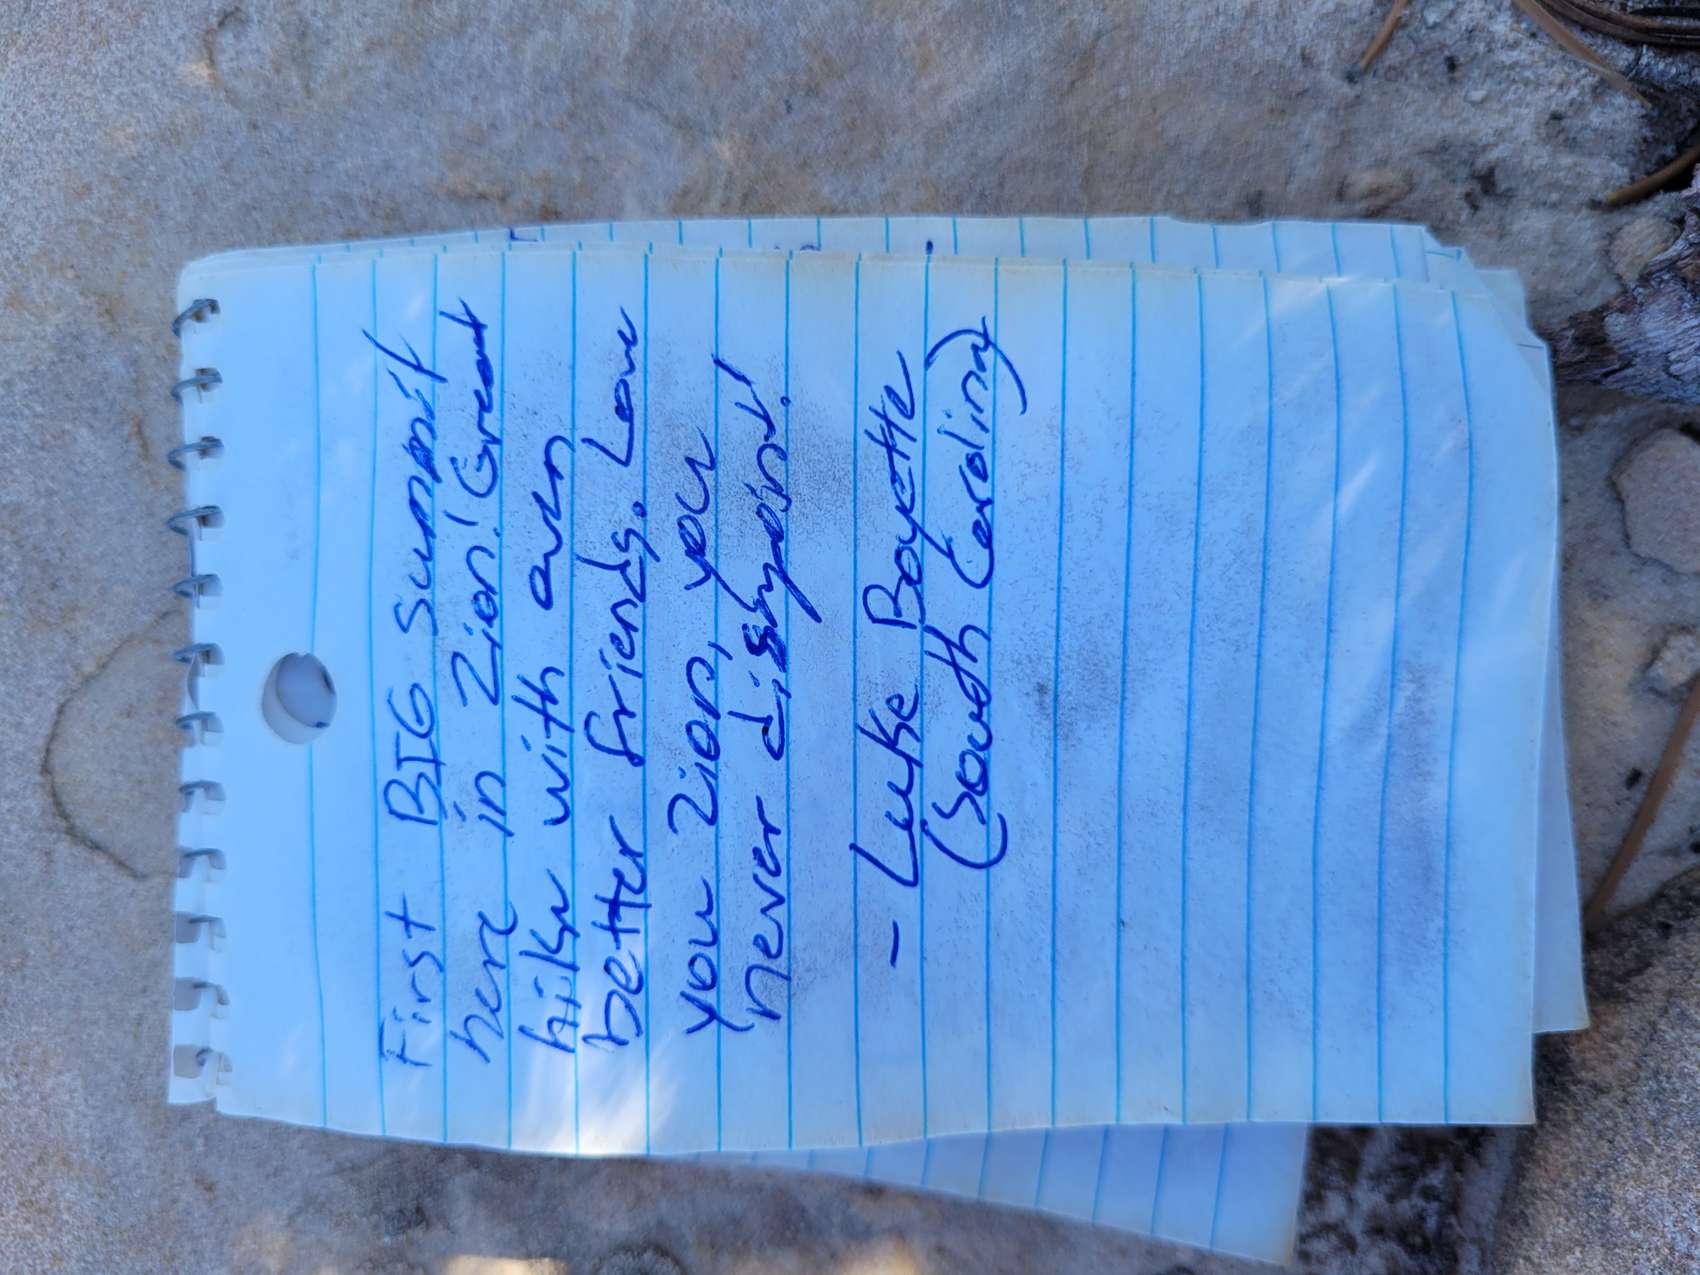 First BIG summit
here in Zion! Great
hike with even
better friends. Love
you Zion, you
never disappoint!
- Luke Boyette
(South Carolina)